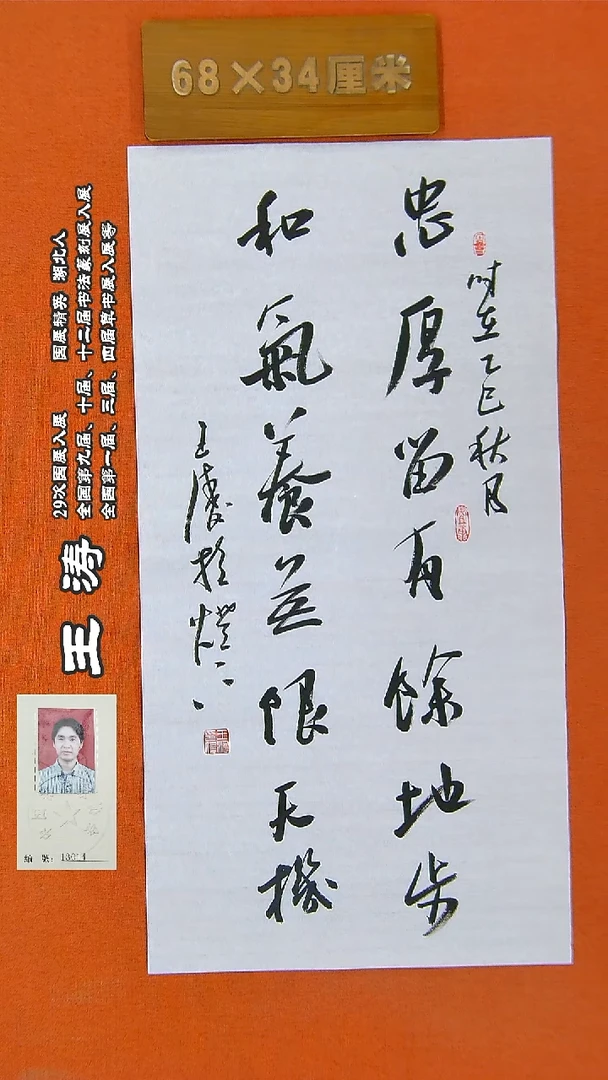 68×34厘米
时在乙巳秋月
忠厚留有餘地步
和氣養無限天機
王濤於燈下
29次国展入展 国展精英 湖北人
全国第九届、十届、十二届书法篆刻展入展
全国第一届、三届、四届草书展入展等
王涛
编号: